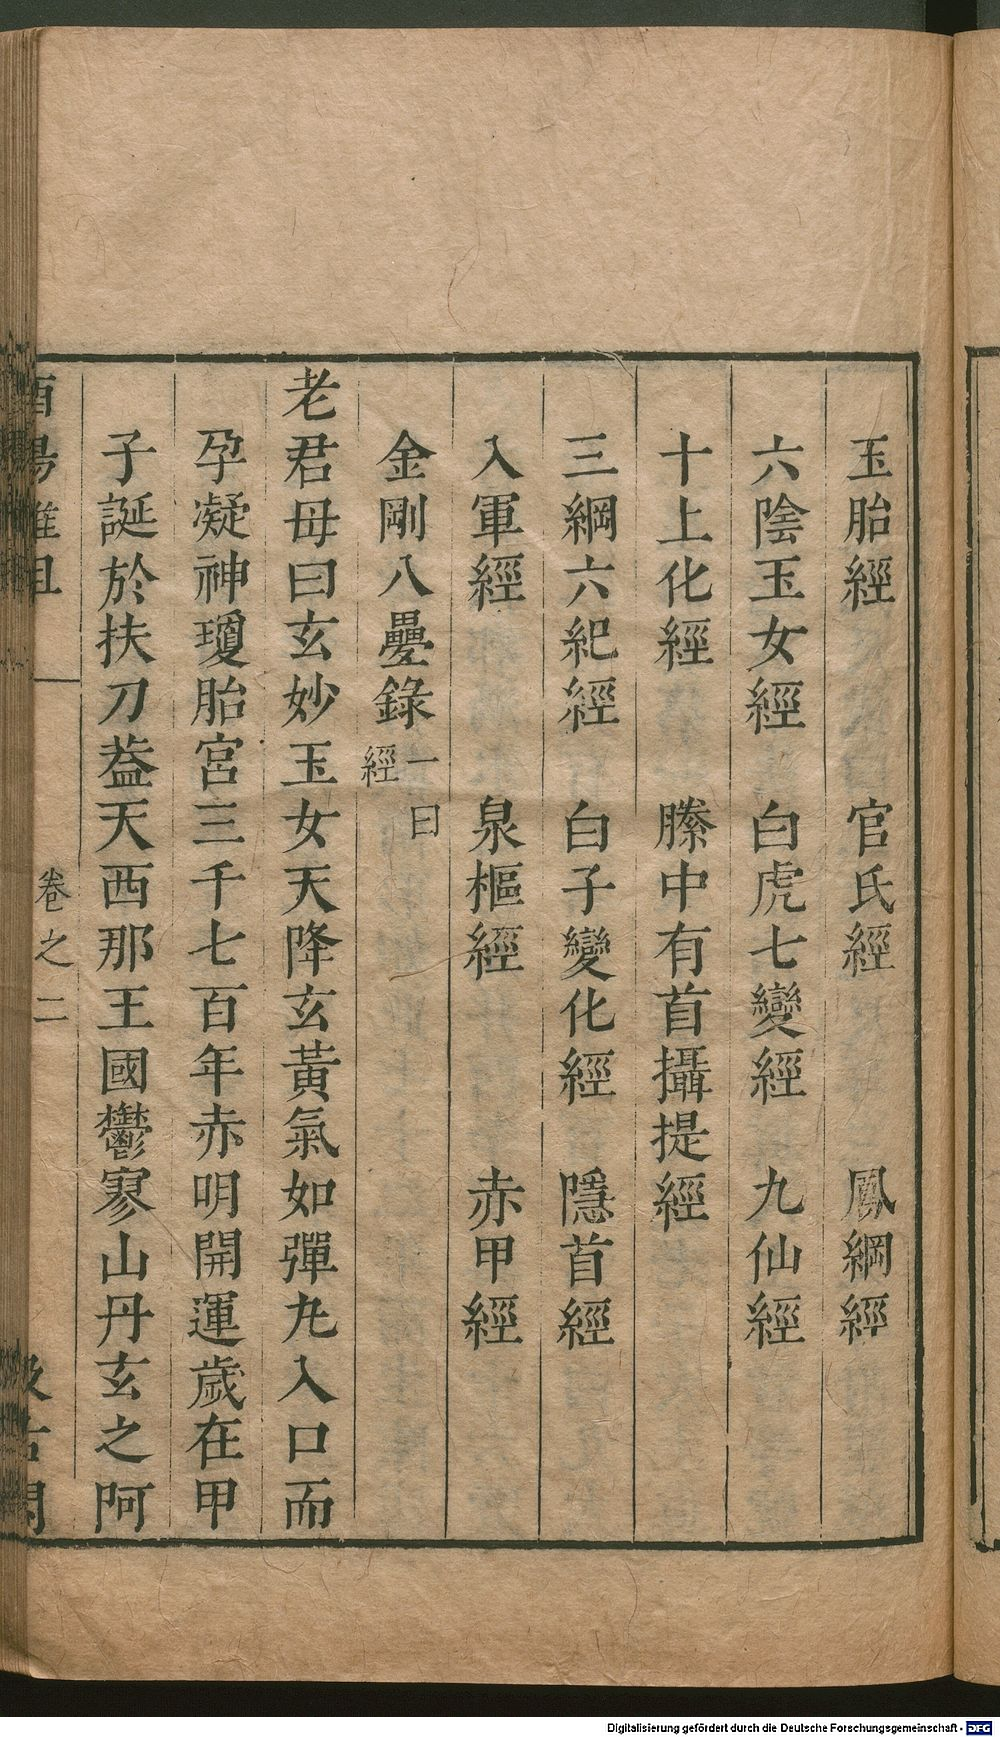 玉胎經　官氏經　鳳綱經
六陰玉女經　白虎七變經　九仙經
十上化經　縢中有首攝提經
三綱六紀經　白子變化經　隱首經
入軍經　泉樞經　赤甲經
金剛八疊錄一曰經
老君母曰玄妙玉女天降玄黃氣如彈丸入口而
孕凝神瓊胎宮三千七百年赤明開運歲在甲
子誕於扶刀葢天西那王國鬱寥山丹玄之阿
酉陽雜俎
卷之二
汲古閣
Digitalisierung gefördert durch die Deutsche Forschungsgemeinschaft - DFG